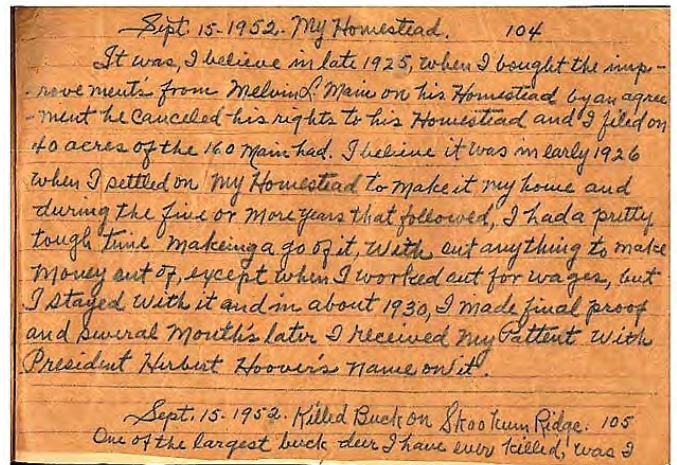 Sept. 15-1952. My Homestead. 104
It was, I believe in late 1925, when I bought the imp-
-rovement's from Melvin L. Main on his Homestead by an agree
-ment he canceled his rights to his Homestead and I filed on
40 acres of the 160 Main had. I believe it was in early 1926
when I settled on My Homestead to make it my home and
during the five or more years that followed, I had a pretty
tough time makeing a go of it, with out anything to make
money out of, except when I worked out for wages, but
I stayed with it and in about 1930, I made final proof
and several Month's later I received my Pattent with
President Herbert Hoover's name on it.
Sept. 15-1952. Killed Buck on Skookum Ridge. 105
One of the largest buck deer I have ever killed, was I